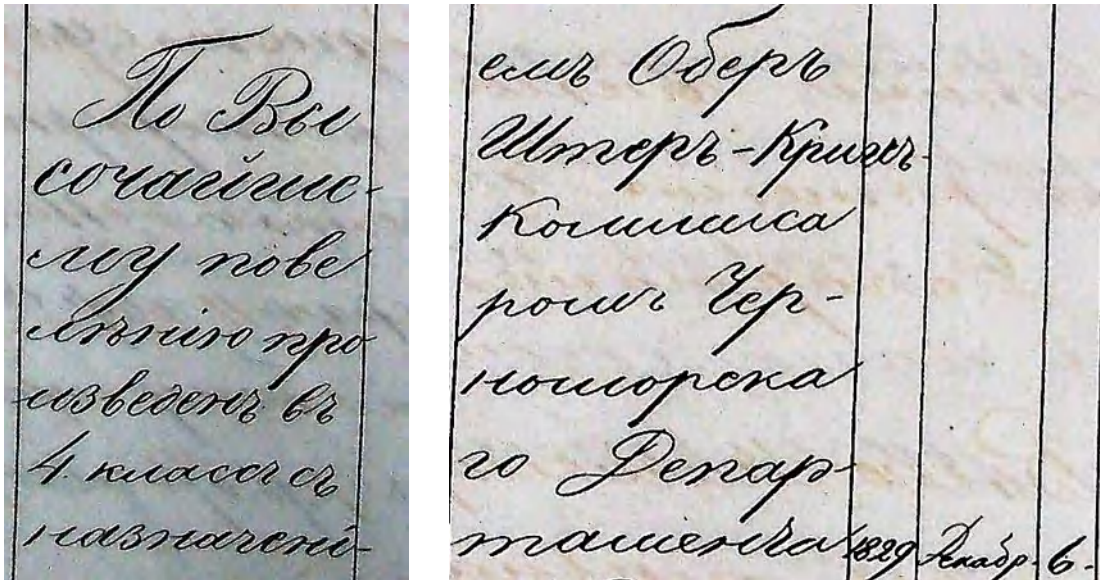 По Вы
сочайше-
му пове
лѣнію про
изведенъ въ
4. классъ съ
назначені-
емъ Оберъ
Штеръ-Кригсъ-
Коммиса
ромъ Чер-
номорска
го Депар-
тамента 1829 Декабр. 6.